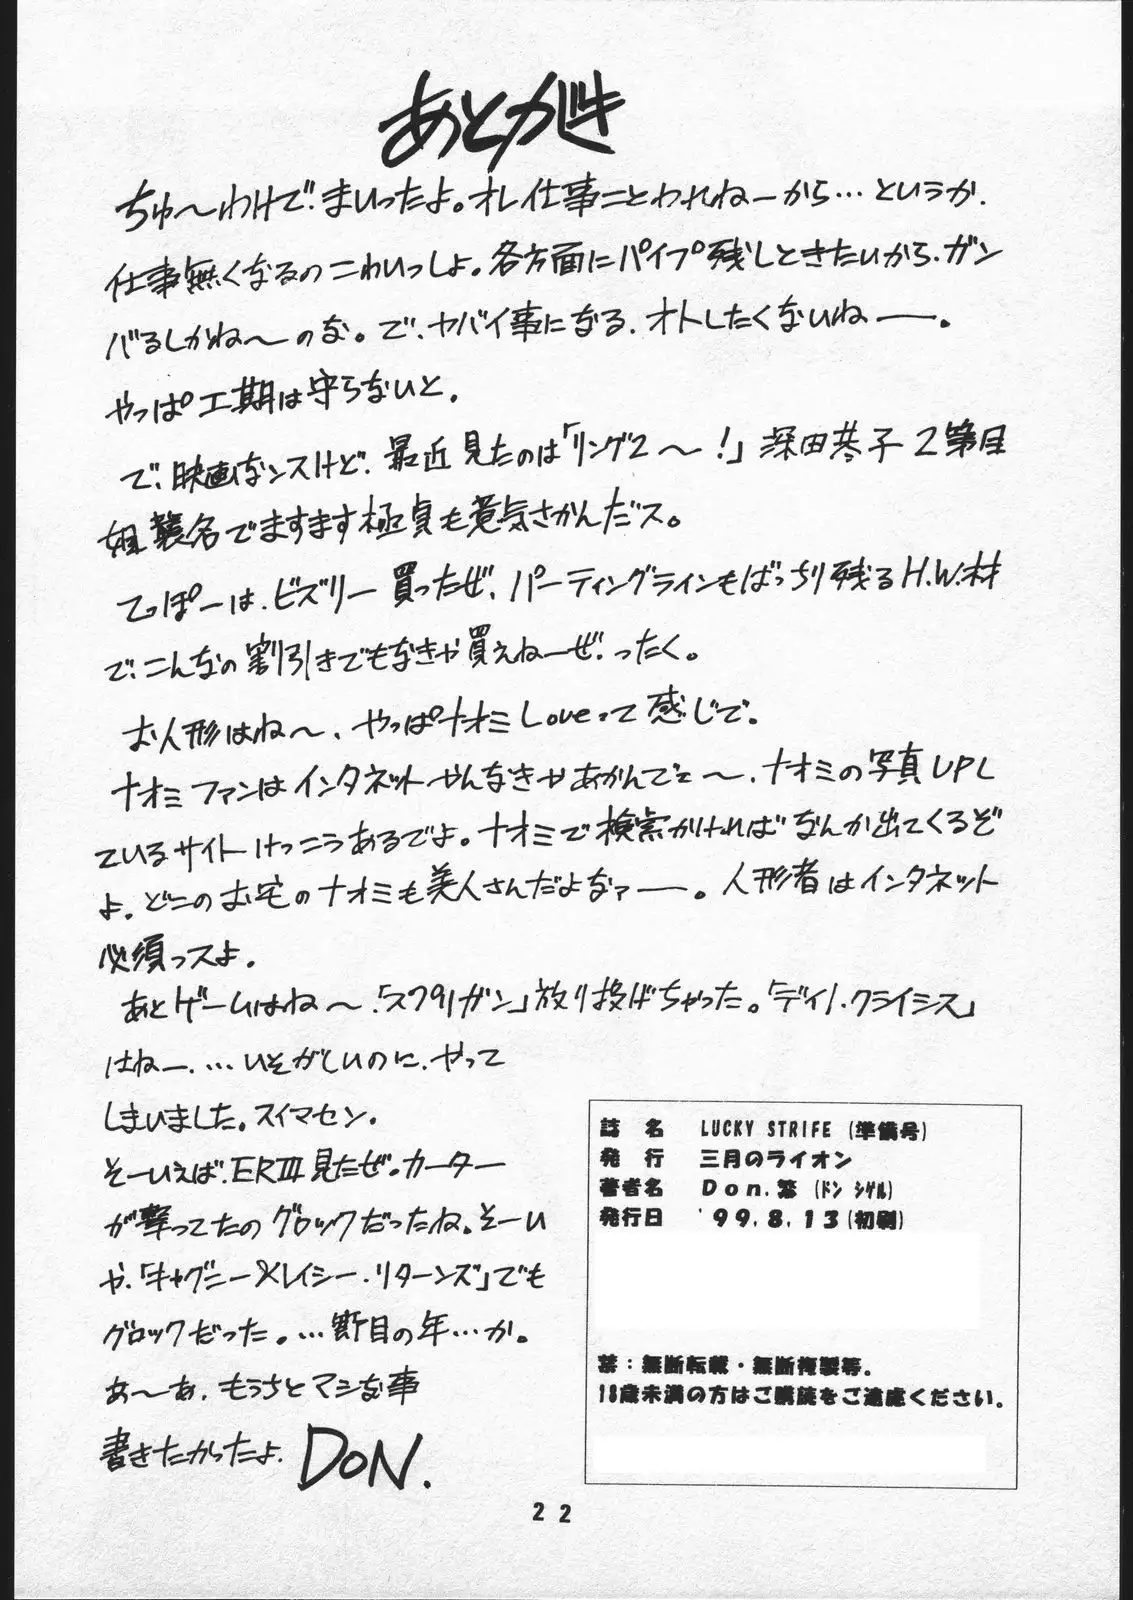 あとがき
ちゅ〜わけで、まいったよ。オレ仕事ことわれねーから…というか、
仕事無くなるのこわいっしょ。各方面にパイプ残しときたいから、ガン
バるしかね〜のな。で、ヤバイ事になる、オトしたくないねー。
やっぱ工期は守らないと。
で、映画なンスけど、最近見たのは「リング2〜!」深田恭子2
襲名でますます極貞も意気さかんだス。
てっぽーは、ビズリー買ったぜ、パーティングラインもばっちり残るH.W.材
で、こんなの割引きでもなきゃ買えねーぜ、ったく。
お人形はね〜、やっぱナオミLoveって感じで。
ナオミファンはインタネットやんなきゃあかんでェ〜、ナオミの写真UPし
ているサイトけっこうあるでよ。ナオミで検索かければなんか出てくるぞ
よ。どこのお宅のナオミも美人さんだよなァー。人形者はインタネット
必須っスよ。
あとゲームはね〜、「スプリガン」放り投げちゃった。「ディノ・クライシス」
はねー、…いそがしいのに、やって
しまいました。スイマセン。
そーいえば、ERIII見たぜ。カーター
が撃ってたのグロックだったね。そーい
や、「キャグニー&レイシー・リターンズ」でも
グロックだった。…節目の年…か。
あ〜あ、もうちとマシな事
書きたかったよ。DON.
誌 名 LUCKY STRIFE (準備号)
発 行 三月のライオン
著者名 Don.繁 (ドン シゲル)
発行日 '99.8.13(初刷)
禁:無断転載・無断複製等.
18歳未満の方はご購読をご遠慮ください.
22